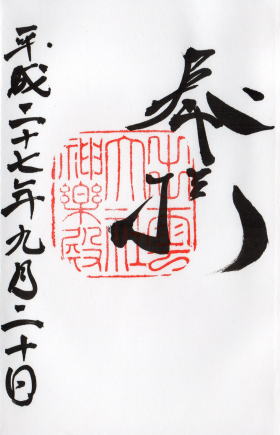 奉拝
出雲
大社
神楽殿
平成二十七年九月二十日